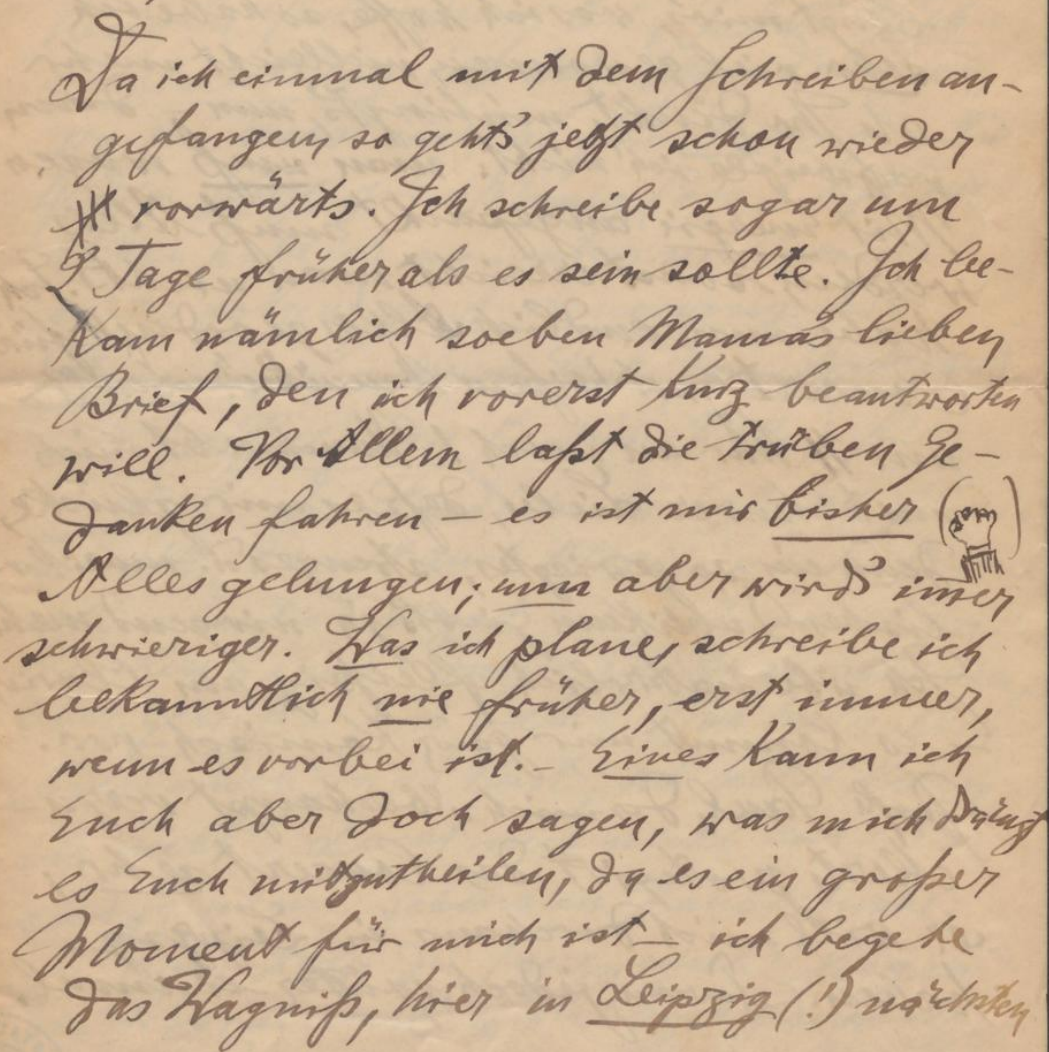 Da ich einmal mit dem Schreiben an-
gefangen, so geht's jetzt schon wieder
vorwärts. Ich schreibe sogar um
2 Tage früher als es sein sollte. Ich be-
kam nämlich soeben Mama's lieben
Brief, den ich vorerst kurz beantworten
will. Vor Allem laßt die trüben Ge-
danken fahren – es ist mir bisher
Alles gelungen; nun aber wird's im̅er
schwieriger. Was ich plane, schreibe ich
bekanntlich nie früher, erst immer,
wenn es vorbei ist. – Eines kann ich
Euch aber doch sagen, was mich drängt
es Euch mitzutheilen, da es ein großer
Moment für mich ist – ich begehe
das Wagniß, hier in Leipzig (!) nächsten